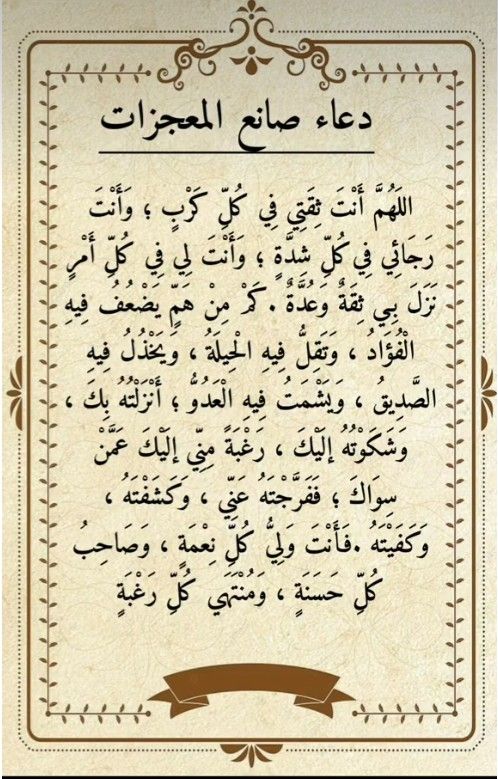 دعاء صانع المعجزات
اللَهُمَّ أَنْتَ ثِقَتِي فِي كُلِّ كَرْبٍ ؛ وَأَنْتَ
رَجَائِي فِي كُلِّ شِدَّةٍ ؛ وَأَنْتَ لِي فِي كُلِّ أَمْرٍ
نَزَلَ بِي ثِقَةٌ وَعُدَّةٌ . كَمْ مِنْ هَمٍّ يَضْعُفُ فِيهِ
الْفُؤَادُ ، وَتَقِلُّ فِيهِ الْحِيلَةُ ، وَيَخْذُلُ فِيهِ
الصَّدِيقُ ، وَيَشْمَتُ فِيهِ الْعَدُوُّ ؛ أَنْزَلْتُهُ بِكَ ،
وَشَكَوْتُهُ إِلَيْكَ ، رَغْبَةً مِنِّي إِلَيْكَ عَمَّنْ
سِوَاكَ ؛ فَفَرَّجْتَهُ عَنِّي ، وَكَشَفْتَهُ ،
وَكَفَيْتَهُ . فَأَنْتَ وَلِيُّ كُلِّ نِعْمَةٍ ، وَصَاحِبُ
كُلِّ حَسَنَةٍ ، وَمُنْتَهَي كُلِّ رَغْبَةٍ